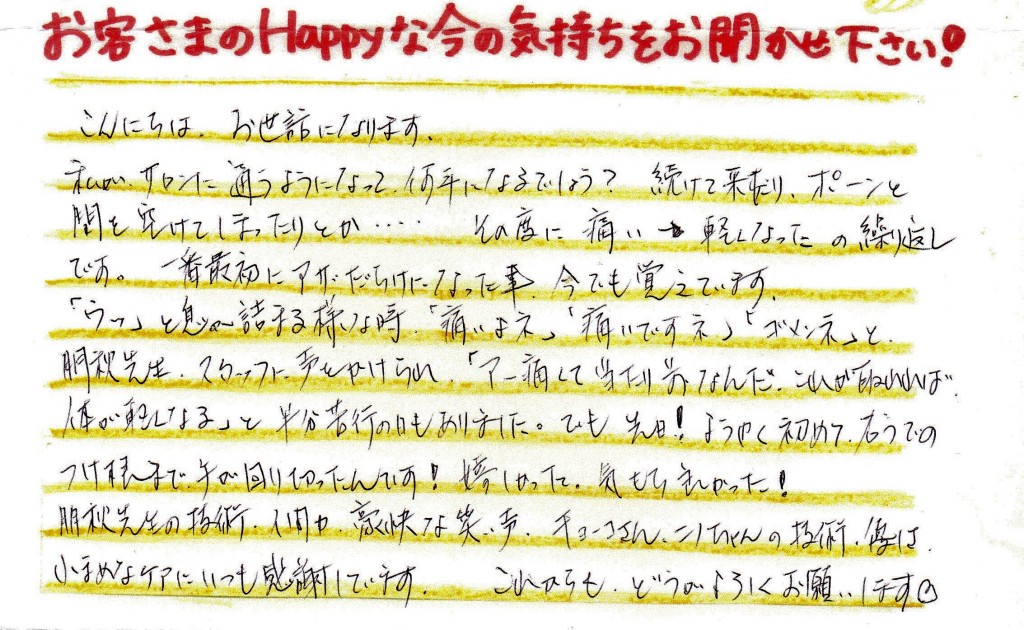 お客さまのHappyな今の気持ちをお聞かせ下さい!
こんにちは、お世話になります。
私が、サロンに通うようになって、何年になるでしょう? 続けて来たり、ポーンと
間を空けてしまったりとか‥‥ その度に痛い→軽くなったの繰り返し
です。一番最初にアザだらけになった事、今でも覚えています。
「ウッ」と息が詰まる様な時、「痛いよネ」「痛いですネ」「ゴメンネ」と、
朋秋先生、スタッフに声をかけられ、「アー痛くて当たり前なんだ、これが取れれば、
体が軽くなる」と半分苦行の日もありました。でも先日!ようやく初めて、右うでの
つけ根まで、手が回り切ったんです!嬉しかった。気もち良かった!
朋秋先生の技術、人間力、豪快な笑い声、キョーコさん、ニノちゃんの技術、
小まめなケアにいつも感謝しています。 これからも、どうかよろしくお願いします